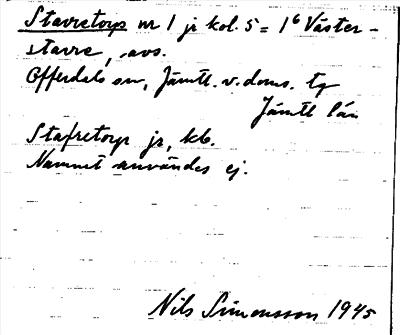 Stavretorp nr 1 jr kol. 5 = 1⁶ Väster-
stavre, avs.
Offerdals sn, Jämtl. v. doms. tg
Jämtl län
Stafretorp jr, kb.
Namnet användes ej.
Nils Simonsson 1945